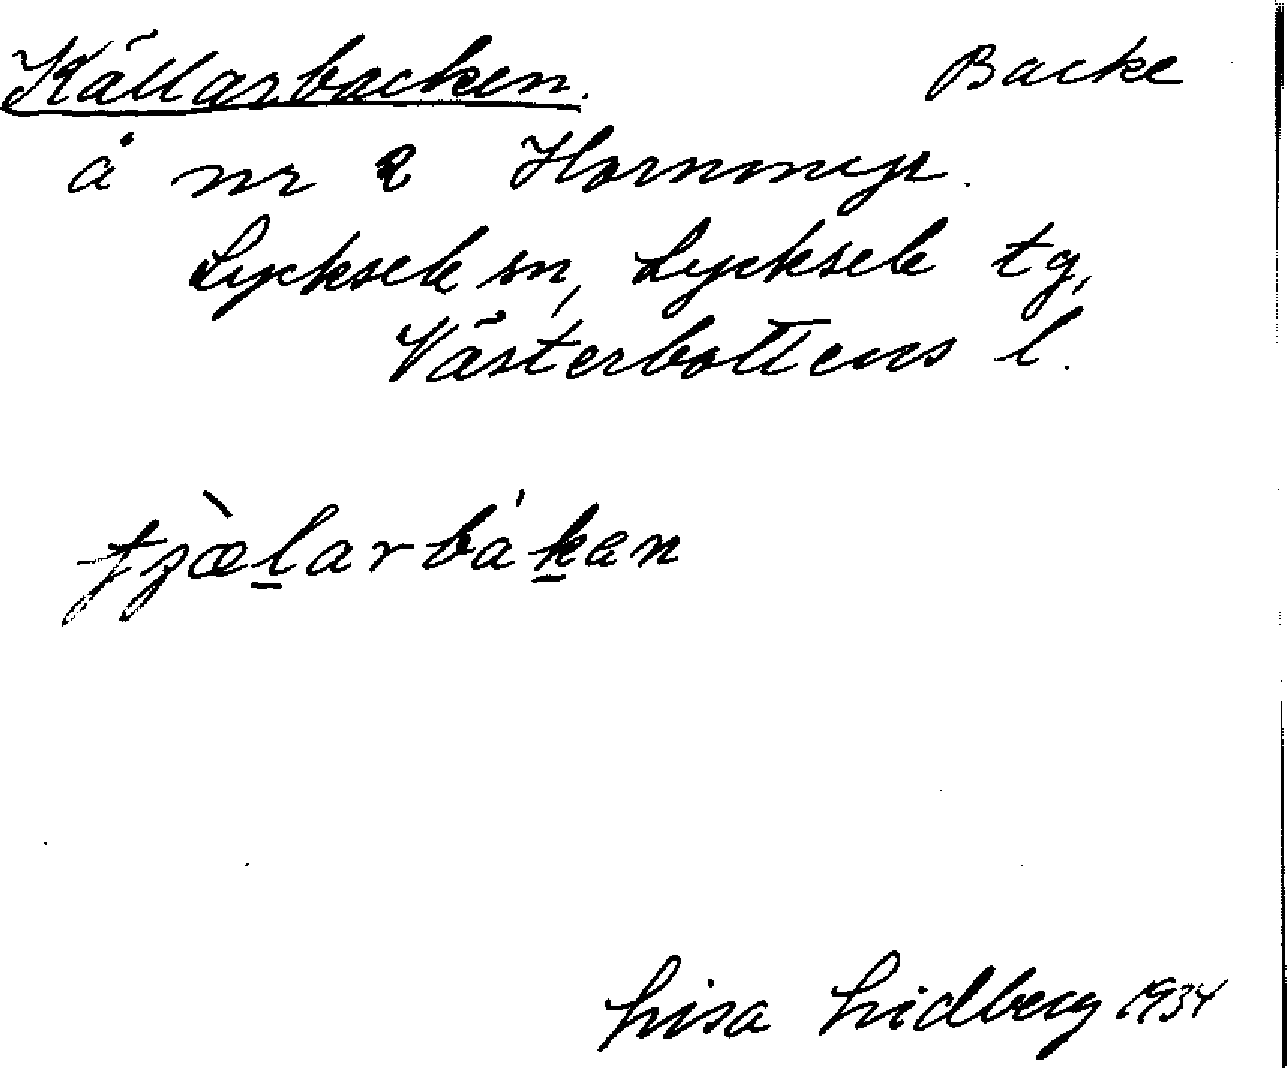 Källarbacken. Backe
å nr 2 Hornmyr.
Lycksele sn, Lycksele tg,
Västerbottens l.
tjæ̀l̲arbák̲en
Lisa Lidberg 1934